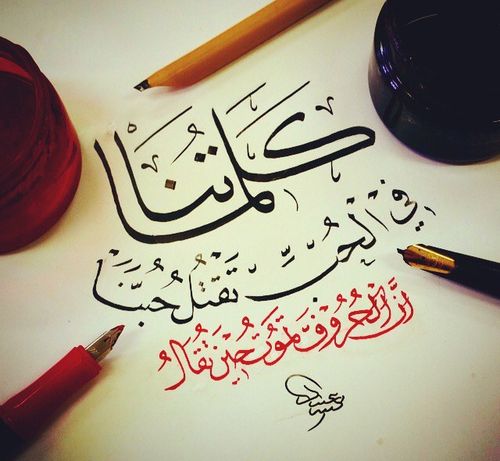 كَلماتُنا
في الْحُبِّ تَقْتُلُ حُبَّنَا
إنَّ الْحُرُوفَ تَمُوتُ حِينَ تُقَالُ